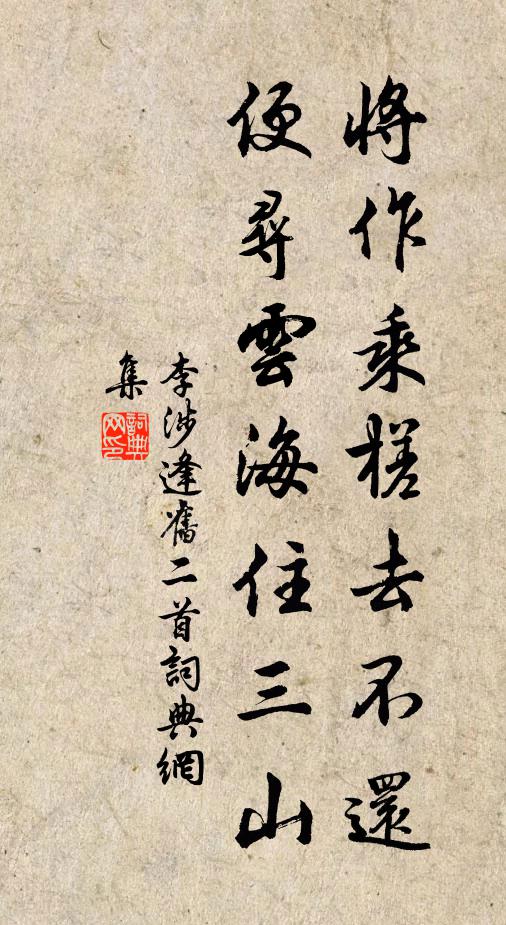 将作乘槎去不還
便尋雲海住三山
李涉逢舊二首詞典網
集
詞典
网印